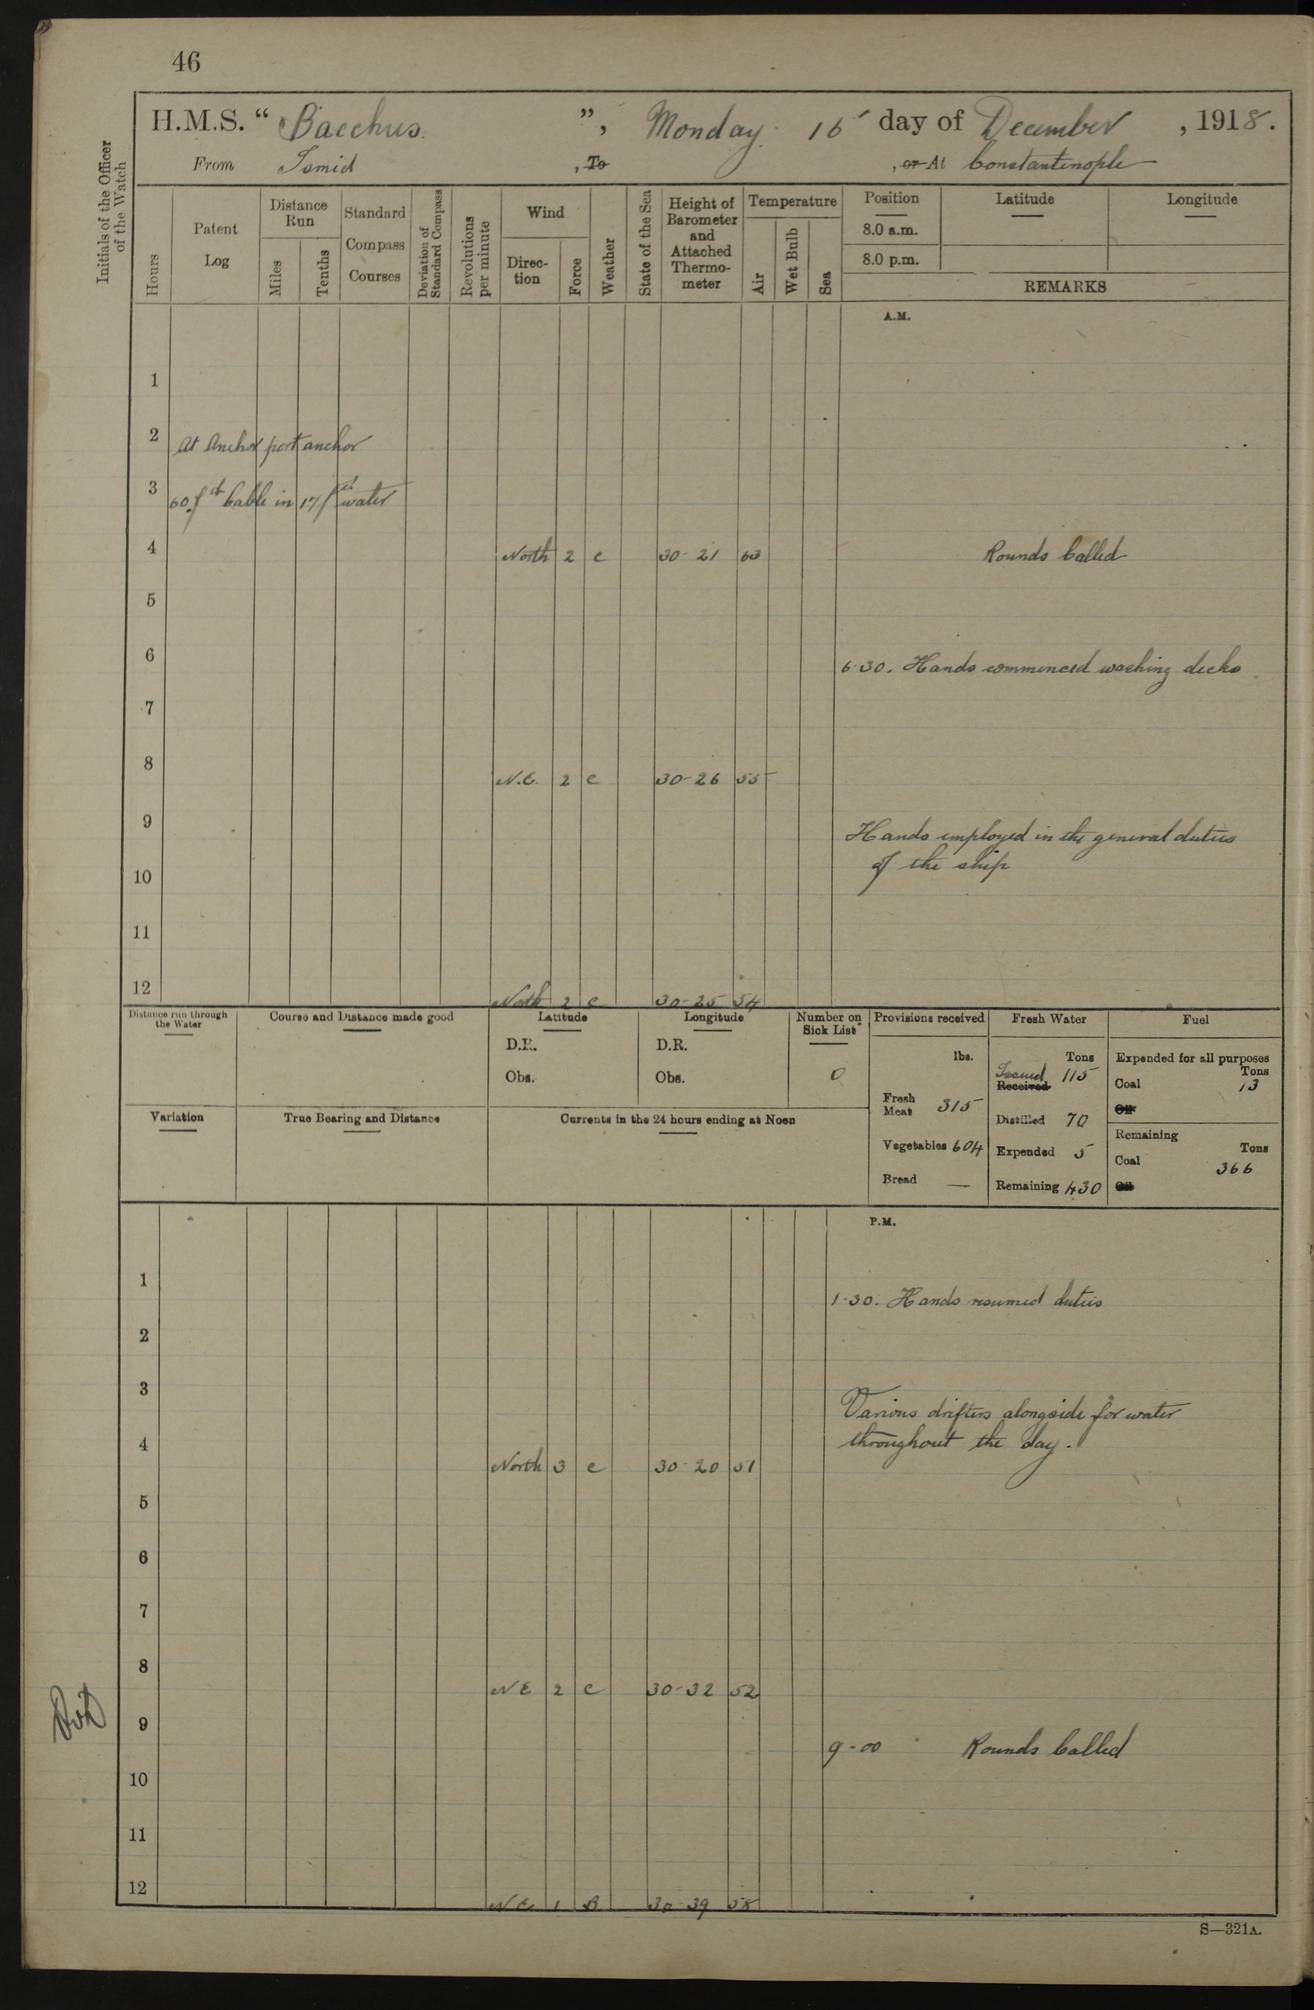 46
H.M.S. “ Bacchus. ”, Monday. 16 day of December , 1918.
From Ismid , To , or At Constantinople
Initials of the Officer of the Watch
Hours
Patent Log
Distance Run
Miles
Tenths
Standard Compass Courses
Deviation of Standard Compass
Revolutions per minute
Wind
Direction
Force
Weather
State of the Sea
Height of Barometer and Attached Thermometer
Temperature
Air
Wet Bulb
Sea
Position
Latitude
Longitude
8.0 a.m.
8.0 p.m.
REMARKS
A.M.
1
2 At Anchor port anchor
3 60 fth Cable in 17 fth water
4 North 2 c 30-21 53 Rounds Called
5
6 6-30. Hands commenced washing decks
7
8 N.E. 2 c 30-26 55
9 Hands employed in the general duties
of the ship
10
11
12 North 2 c 30-25 54
Distance run through the Water
Course and Distance made good
Latitude
D.R.
Obs.
Longitude
D.R.
Obs.
Number on Sick List
0
Provisions received
lbs.
Fresh Meat 315
Vegetables 604
Bread —
Fresh Water
Tons
Issued 115
Received
Distilled 70
Expended 5
Remaining 430
Fuel
Expended for all purposes
Tons
Coal 13
Oil
Remaining
Tons
Coal 366
Oil
Variation
True Bearing and Distance
Currents in the 24 hours ending at Noon
P.M.
1 1-30. Hands resumed duties
2
3 Various drifters alongside for water
4 throughout the day.
North 3 c 30-20 51
5
6
7
8 NE 2 c 30-32 52
9 9-00 Rounds Called
10
11
12 NE 1 B 30-39 58
S—321A.